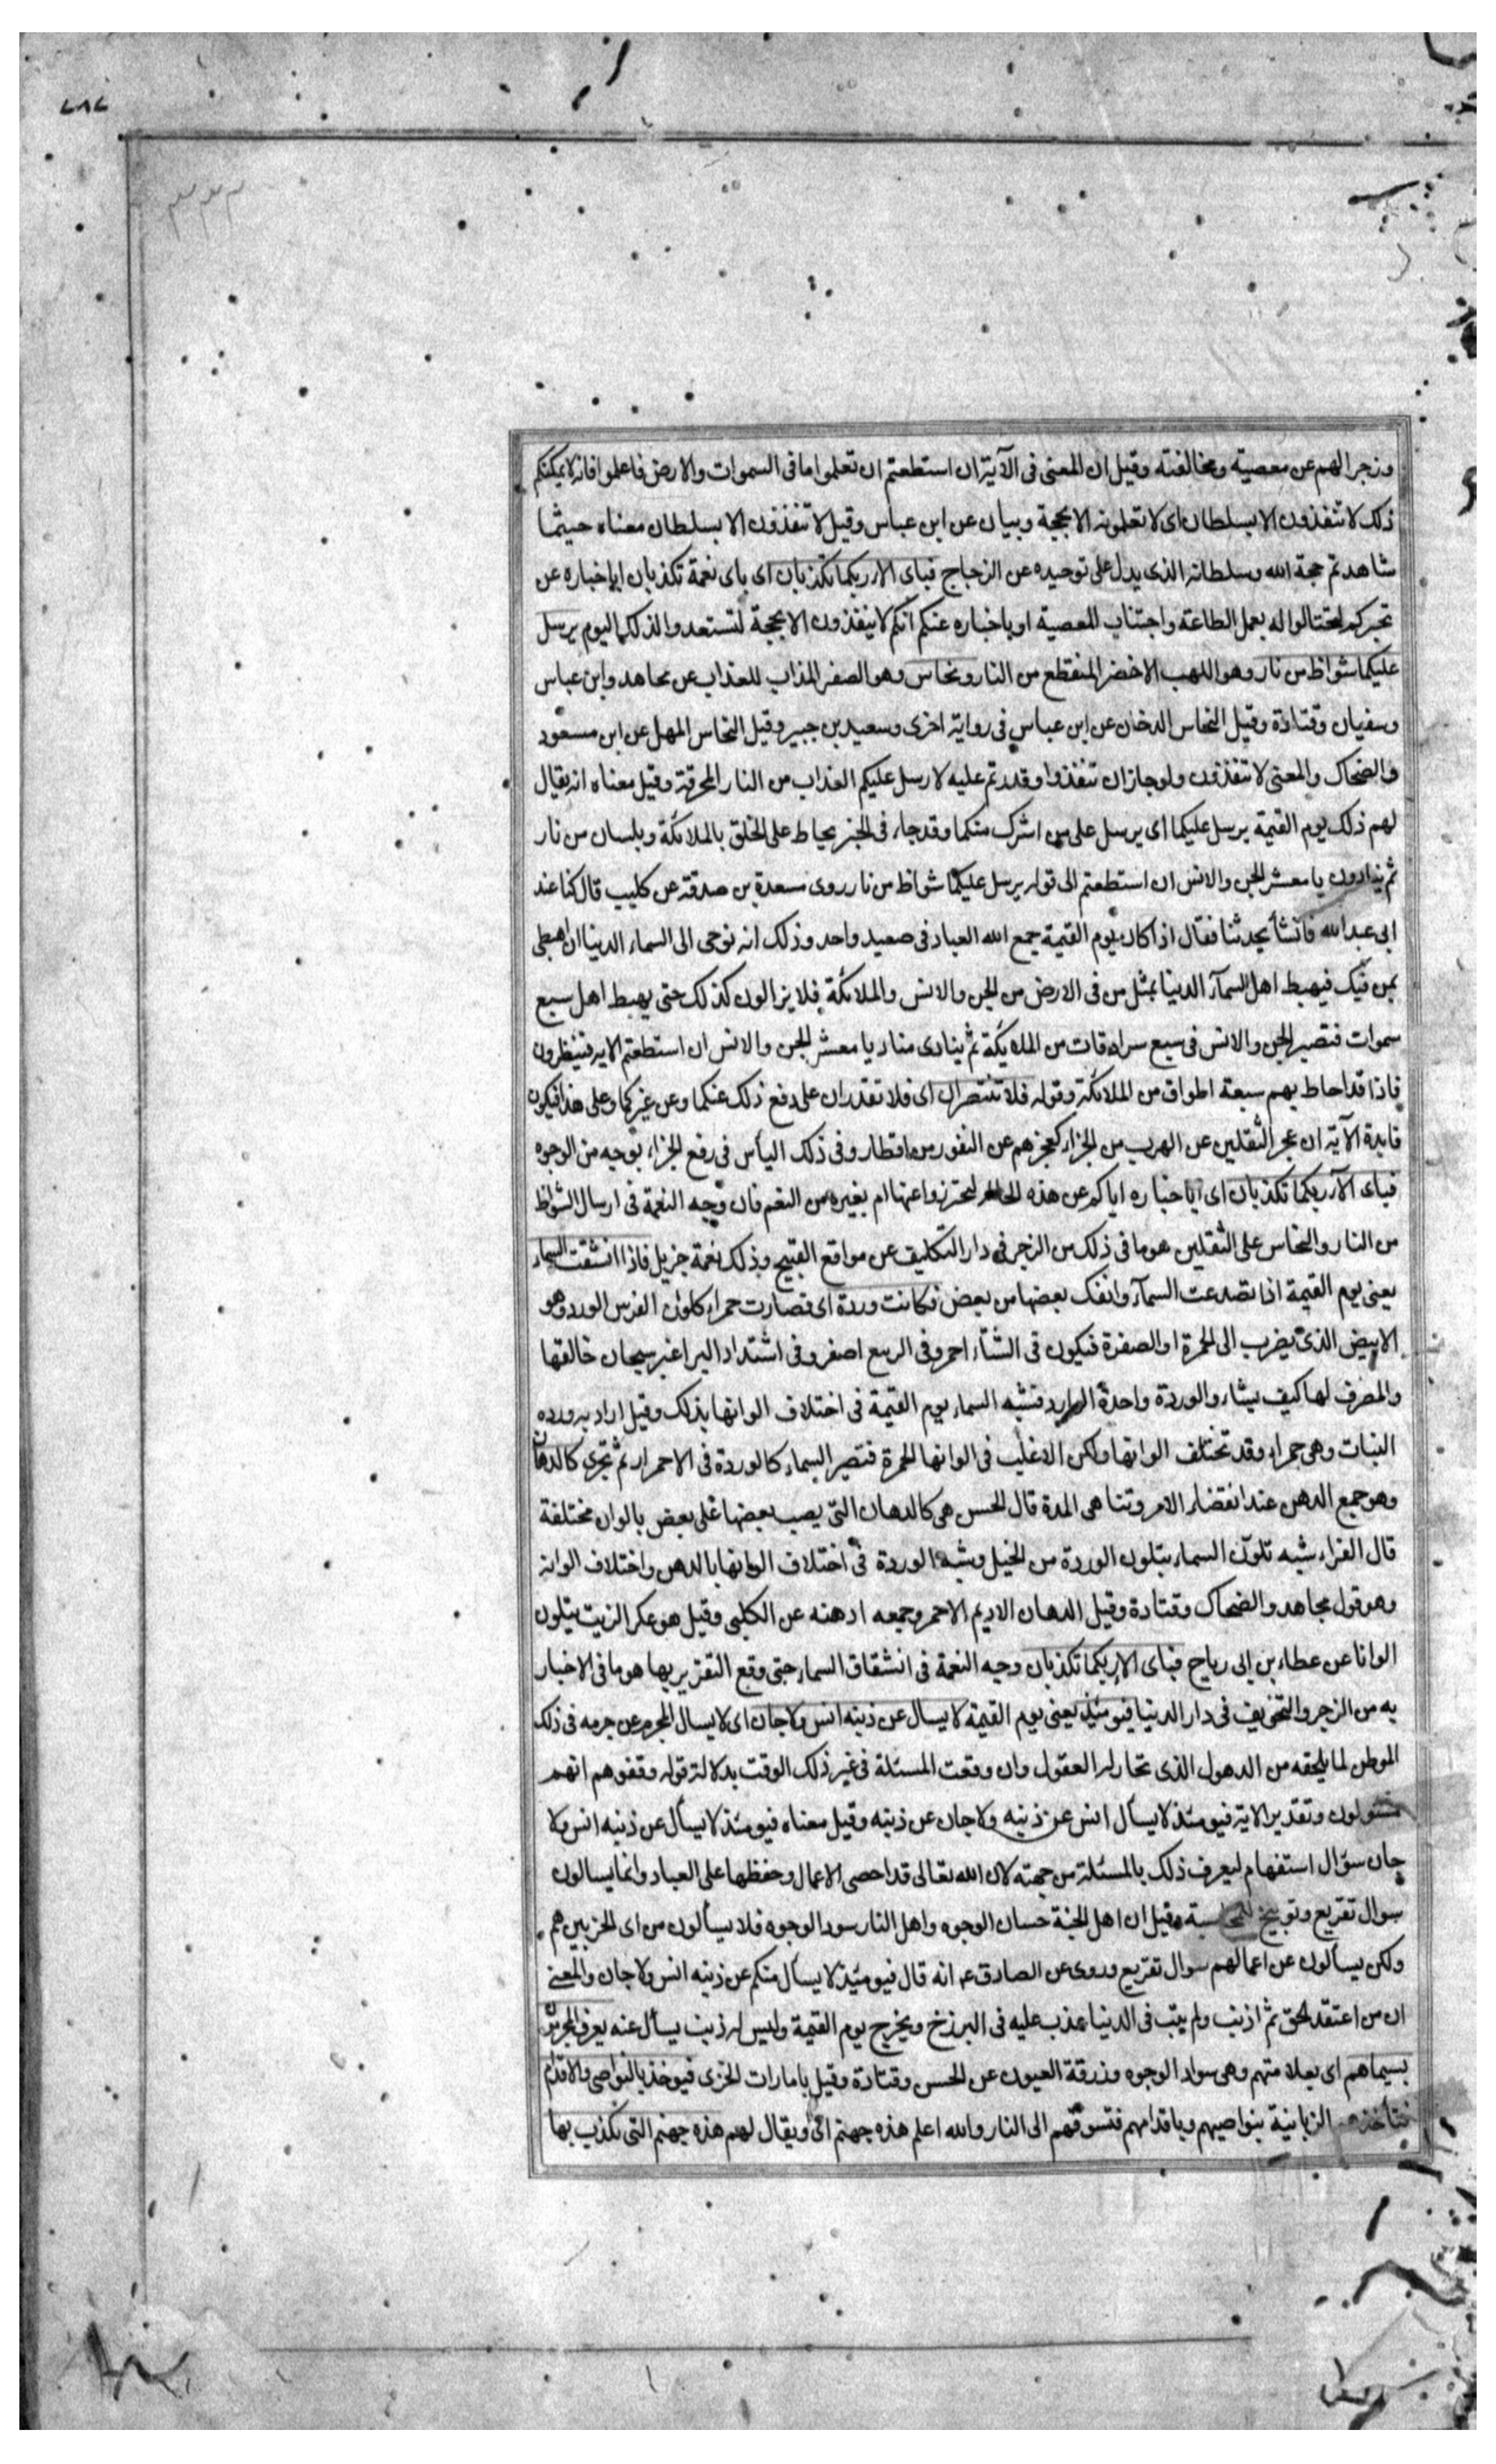 ٢٨٢
٣٣٣
وزجرا لهم عن معصيته ومخالفته وقيل ان المعنى فى الآية ان استطعتم ان تعلموا ما فى السموات والارض فاعلموا فانه لا يمكنكم
ذلك لا تنفذون الا بسلطان اى لا تعلمونه الا بحجة وبيان عن ابن عباس وقيل لا تنفذون الا بسلطان معناه حيثما
شاهدتم حجة الله وسلطانه الذى يدل على توحيده عن الزجاج فباى الاء ربكما تكذبان اى باى نعمة تكذبان ابا خباره عن
تحيركم لتحتالوا له بعمل الطاعة واجتناب المعصية او باخباره عنكم انكم لا ينفذون الا بحجة لتستعدوا لذلك اليوم يرسل
عليكما شواظ من نار وهو اللهب الاخضر المنقطع من النار ونحاس وهو الصفر المذاب للعذاب عن مجاهد وابن عباس
وسفيان وقتادة وقيل النحاس الدخان عن ابن عباس فى رواية اخرى وسعيد بن جبير وقيل النحاس المهل عن ابن مسعود
والضحاك والمعنى لا تنفذون ولو جاز ان تنفذوا وقدرتم عليه لارسل عليكم العذاب من النار المحرقة وقيل معناه انه يقال
لهم ذلك يوم القيمة يرسل عليكما اى يرسل على من اشرك منكما وقد جاء فى الخبر يحاط على الخلق بالملائكة وبلسان من نار
ثم ينادون يا معشر الجن والانس ان استطعتم الى قوله يرسل عليكما شواظ من نار روى مسعدة بن صدقة عن كليب قال كنا عند
ابى عبد الله فانشأ يحدثنا فقال اذا كان يوم القيمة جمع الله العباد فى صعيد واحد وذلك انه نوحى الى السماء الدنيا ان اهبطى
بمن فيك فيهبط اهل السمآء الدنيا بمثل من فى الارض من الجن والانس والملائكة فلا يزالون كذلك حتى يهبط اهل سبع
سموات فتصير الجن والانس فى سبع سرادقات من الملائكة ثم ينادى مناد يا معشر الجن والانس ان استطعتم الايه فينظرون
فاذا قد احاط بهم سبعة اطواق من الملائكة وقوله فلا تنتصران اى فلا تقدران على دفع ذلك عنكما وعن غيركما وعلى هذا فيكون
فايدة الآية ان عجز الثقلين عن الهرب من الجزاء كعجزهم عن النفور من اقطار وفى ذلك اليأس فى رفع الجزاء بوجه من الوجوه
فباى الآء ربكما تكذبان اى ابا خباره اياكم عن هذه لتحترزوا عنها ام بغيره من النعم فان وجه النعمة فى ارسال الشواظ
من النار والنحاس على الثقلين هو ما فى ذلك من الزجر فى دار التكليف عن مواقع القبيح وذلك نعمة جزيل فاذا انشقت السماء
يعنى يوم القيمة اذا تصدعت السمآء وانفك بعضها من بعض فكانت وردة اى فصارت حمراء كلون الفرس الورد وهو
الابيض الذى يضرب الى الحمرة او الصفرة فيكون فى الشتاء احمر وفى الربيع اصفر وفى اشتداد البر اغبر سبحان خالقها
والمصرف لها كيف يشاء والوردة واحدة الورد فشبه السماء يوم القيمة فى اختلاف الوانها بذلك وقيل اراد به ورده
النبات وهى حمراء وقد تختلف الوانها ولكن الاغلب فى الوانها الحمرة فتصير السماء كالوردة فى الاحمرار ثم تجرى كالدهان
وهو جمع الدهن عند انقضاء الامر وتناهى المدة قال الحسن هى كالدهان التى يصب بعضها على بعض بالوان مختلفة
قال الفراء شبه تلون السماء بتلون الوردة من الخيل وشبه الوردة فى اختلاف الوانها بالدهن واختلاف الوانه
وهو قول مجاهد والضحاك وقتادة وقيل الدهان الاديم الاحمر وجمعه ادهنه عن الكلبى وقيل هو عكر الزيت يتلون
الوانا عن عطاء بن ابى رباح فباى الاء ربكما تكذبان وجه النعمة فى انشقاق السماء حتى وقع التقرير بها هو ما فى الاخبار
به من الزجر والتخويف فى دار الدنيا فيومئذ يعنى يوم القيمة لا يسال عن ذنبه انس ولا جان اى لا يسال المجرم عن جرمه فى ذلك
الموطن لما يلحقه من الدهول الذى تحار له العقول وان وقعت المسئلة فى غير ذلك الوقت بدلالة قوله وقفوهم انهم
مسئولون وتقدير الاية فيومئذ لا يسأل انس عن ذنبه ولا جان عن ذنبه وقيل معناه فيومئذ لا يسأل عن ذنبه انس ولا
جان سؤال استفهام ليعرف ذلك بالمسئلة من جهته لان الله تعالى قد احصى الاعمال وحفظها على العباد وانما يسالون
سوال تقريع وتوبيخ للمحاسبة وقيل ان اهل الجنة حسان الوجوه واهل النار سود الوجوه فلا يسألون من اى الحزبين هم
ولكن يسألون عن اعمالهم سوال تقريع وروى عن الصادق ع انه قال فيومئذ لا يسأل منكم عن ذنبه انس ولا جان والمعنى
ان من اعتقد الحق ثم اذنب ولم يتب فى الدنيا عذب عليه فى البرزخ ويخرج يوم القيمة وليس له ذنب يسأل عنه يعرف المجرمون
بسيماهم اى بعلامتهم وهى سواد الوجوه وزرقة العيون عن الحسن وقتادة وقيل بامارات الخزى فيوخذ بالنواصى والاقدام
فتاخذهم الزبانية بنواصيهم وباقدامهم فتسوقهم الى النار والله اعلم هذه جهنم اى ويقال لهم هذه جهنم التى يكذب بها